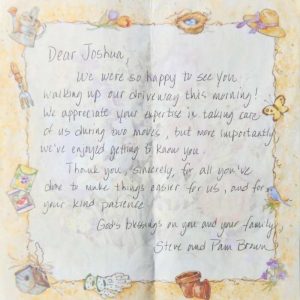 Dear Joshua,
We were so happy to see you
walking up our driveway this morning!
We appreciate your expertise in taking care
of us during two moves, but more importantly
we've enjoyed getting to know you.
Thank you, sincerely, for all you've
done to make things easier for us, and for
your kind patience.
God's blessings on you and your family,
Steve and Pam Brown